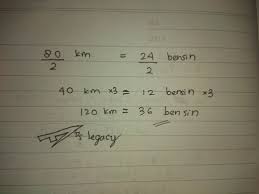 80/2 km = 24/2 bensin
40 km ×3 = 12 bensin ×3
120 km = 36 bensin
legacy